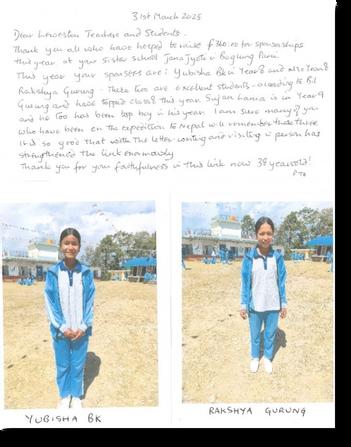 31st March 2025
Dear Teachers and Students.
Thank you all who have helped to raise £360.00 for sponsorships
this year at your Sister school Jana Jyoti Baglung Pani
This year your sponsees are: Yubisha Bk in Year 8 and also Year 8
Rakshya Gurung - these two are excellent students - according to Bil
Gurung and have topped class 8 this year. Sujan is in Year 9
and he too has been top boy in his year. I am sure many of you
who have been on the expedition to Nepal will remember these three
It is so good that with the letter writing and visiting in person has
strengthened the link enormously
Thank you for your faithfulness in this link now 38 years old!
PTO
YUBISHA BK
RAKSHYA GURUNG